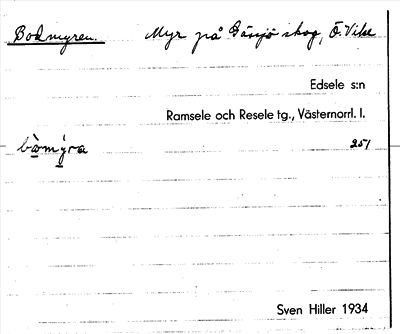 Bodmyren. Myr på Gåsjö skog, Ö. Vike
Edsele s:n
Ramsele och Resele tg., Västernorrl. l.
bò̀mýra 251
Sven Hiller 1934